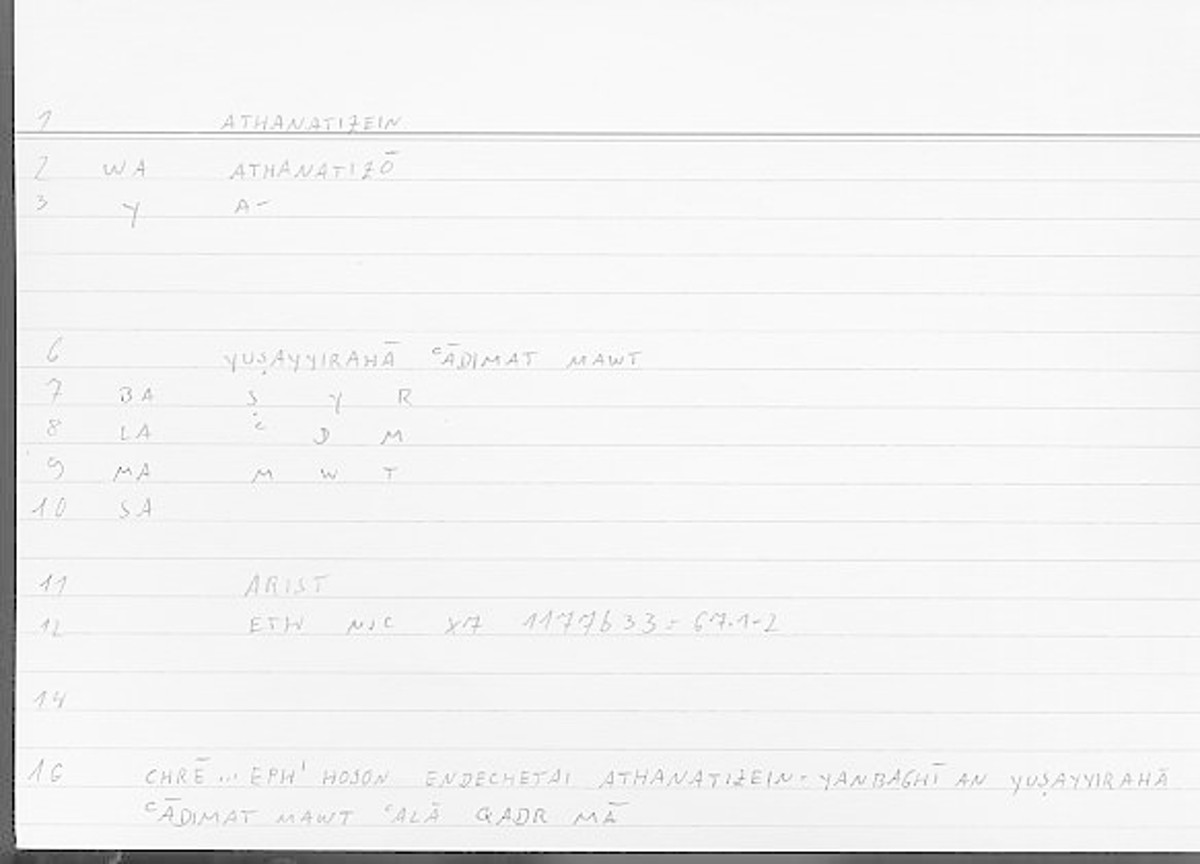 1 ATHANATIZEIN
2 WA ATHANATIZŌ
3 Y A-
6 YUṢAYYIRAHĀ ʿĀDIMAT MAWT
7 BA Ṣ Y R
8 LA ʿ D M
9 MA M W T
10 SA
11 ARIST
12 ETH NIC X7 1177b33 = 67.1-2
14
16 CHRĒ ... EPH' HOSON ENDECHETAI ATHANATIZEIN = YANBAGHĪ AN YUṢAYYIRAHĀ
ʿĀDIMAT MAWT ʿALĀ QADR MĀ